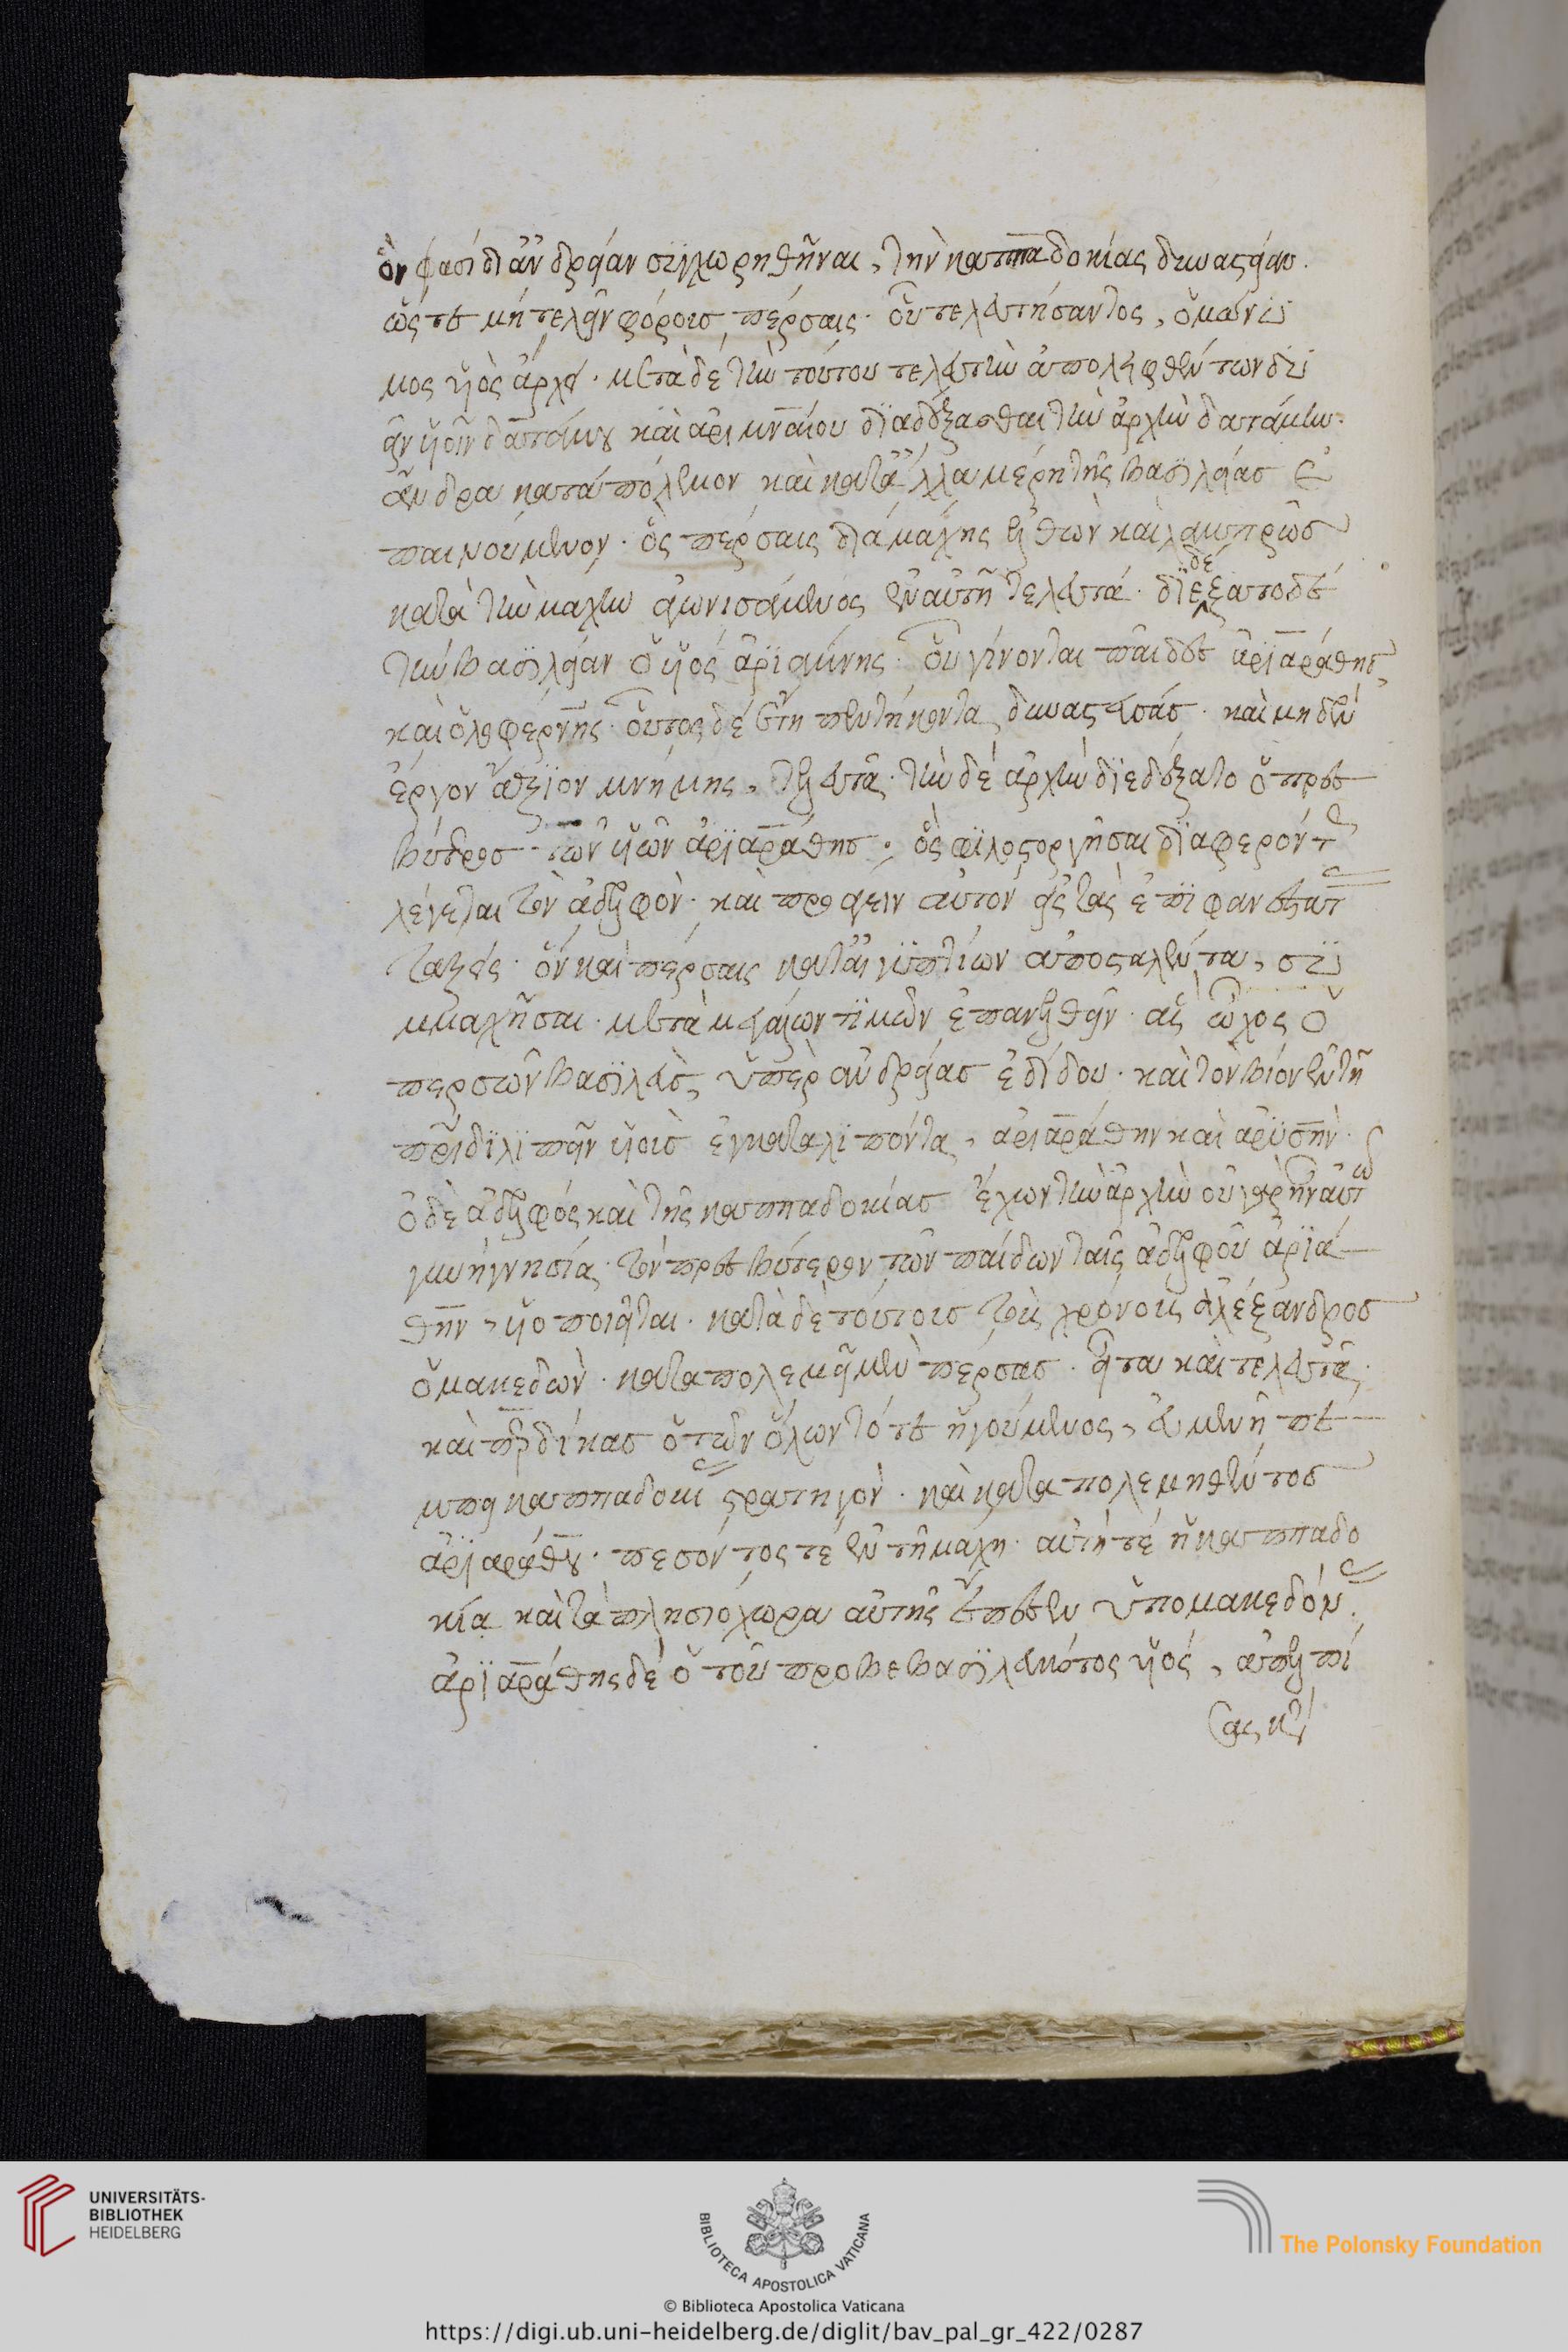 ὃν φασὶ δι ἀνδρείαν συγχωρηθῆναι, τὴν καππαδοκίας δυναστείαν.
ὥστε μὴ τελεῖν φόρους πέρσαις. οὗ τελευτήσαντος, ὁμώνυ
μος υἱὸς ἄρχει. μετὰ δὲ τὴν τούτου τελευτὴν ἀπολειφθέντων δυ
εῖν υἱοῖν δατάμου καὶ ἀριμναίου διαδέξασθαι τὴν ἀρχὴν δατάμην.
ἄνδρα κατὰ πόλεμον καὶ κατ ἄλλα μέρη τῆς βασιλείας ἐ
παινούμενον. ὃς πέρσαις διὰ μάχης ἐλθὼν καὶ λαμπρῶς
κατὰ τὴν μάχην ἀγωνισάμενος ἐν αὐτῆ τελευτᾶ. διεδέξατο δὲ
τὴν βασιλείαν ὁ υἱός ἀριάμνης. οὗ γίνονται παῖδες ἀριαράθης
καὶ ὀλοφέρνης. οὗτος δὲ ἔτη πεντήκοντα δυναστεύσας. καὶ μηδὲν
ἔργον ἄξιον μνήμης, τελευτᾶ. τὴν δὲ ἀρχὴν διεδέξατο ὁ πρεσ
βύτερος τῶν υἱῶν ἀριαράθης. ὃς φιλοστοργῆσαι διαφερόντ
λέγεται τὸν ἀδελφὸν. καὶ προάγειν αὐτὸν εἰς τὰς ἐπιφανεστάτ
τάξεις. ὃν καὶ πέρσαις κατ αἰγυπτίων ἀποσταλέντα, συ
μμαχῆσαι. μετὰ μεγάλων τιμῶν ἐπανελθεῖν. ἃς ὦχος ὁ
περσῶν βασιλεὺς, ὑπὲρ ἀνδρείας ἐδίδου. καὶ τὸν βίον ἐν τῆ
πρίδι λιπεῖν υἱοὺς ἐγκαταλιπόντα, ἀριαράθην καὶ ἀρύσην.
ὁ δὲ ἀδελφὸς καὶ τῆς καππαδοκίας ἔχων τὴν ἀρχὴν οὐ γὰρ ἦν αὐτῶ
γονὴ γνησία. τὸν πρεσβύτερον τῶν παίδων ταῖς ἀδελφοῦ ἀριά
θην, υἱοποιεῖται. κατὰ δὲ τούτους τοὺς χρόνους ἀλέξανδρος
ὁ μακεδὼν. καταπολεμεῖ μὲν πέρσας. εἶτα καὶ τελευτᾶ.
καὶ πρδίκας ὁ τῶν ὅλων τότε ἡγούμενος, εὐμένη πέ
μπει καππαδοκί στρατηγὸν. καὶ καταπολεμηθέντος
ἀριαράθου. πεσόντος τὲ ἐν τῆ μάχη. αὐτή τὲ ἡ καππαδο
κία καὶ τὰ πλησιόχωρα αὐτῆς ἔπεσεν ὑπὸ μακεδόν.
ἀριαράθης δὲ ὁ τοῦ προβεβασιλευκότος υἱός, ἀπελπί
σας κτ
UNIVERSITÄTS-
BIBLIOTHEK
HEIDELBERG
BIBLIOTECA APOSTOLICA VATICANA
The Polonsky Foundation
© Biblioteca Apostolica Vaticana
https://digi.ub.uni-heidelberg.de/diglit/bav_pal_gr_422/0287